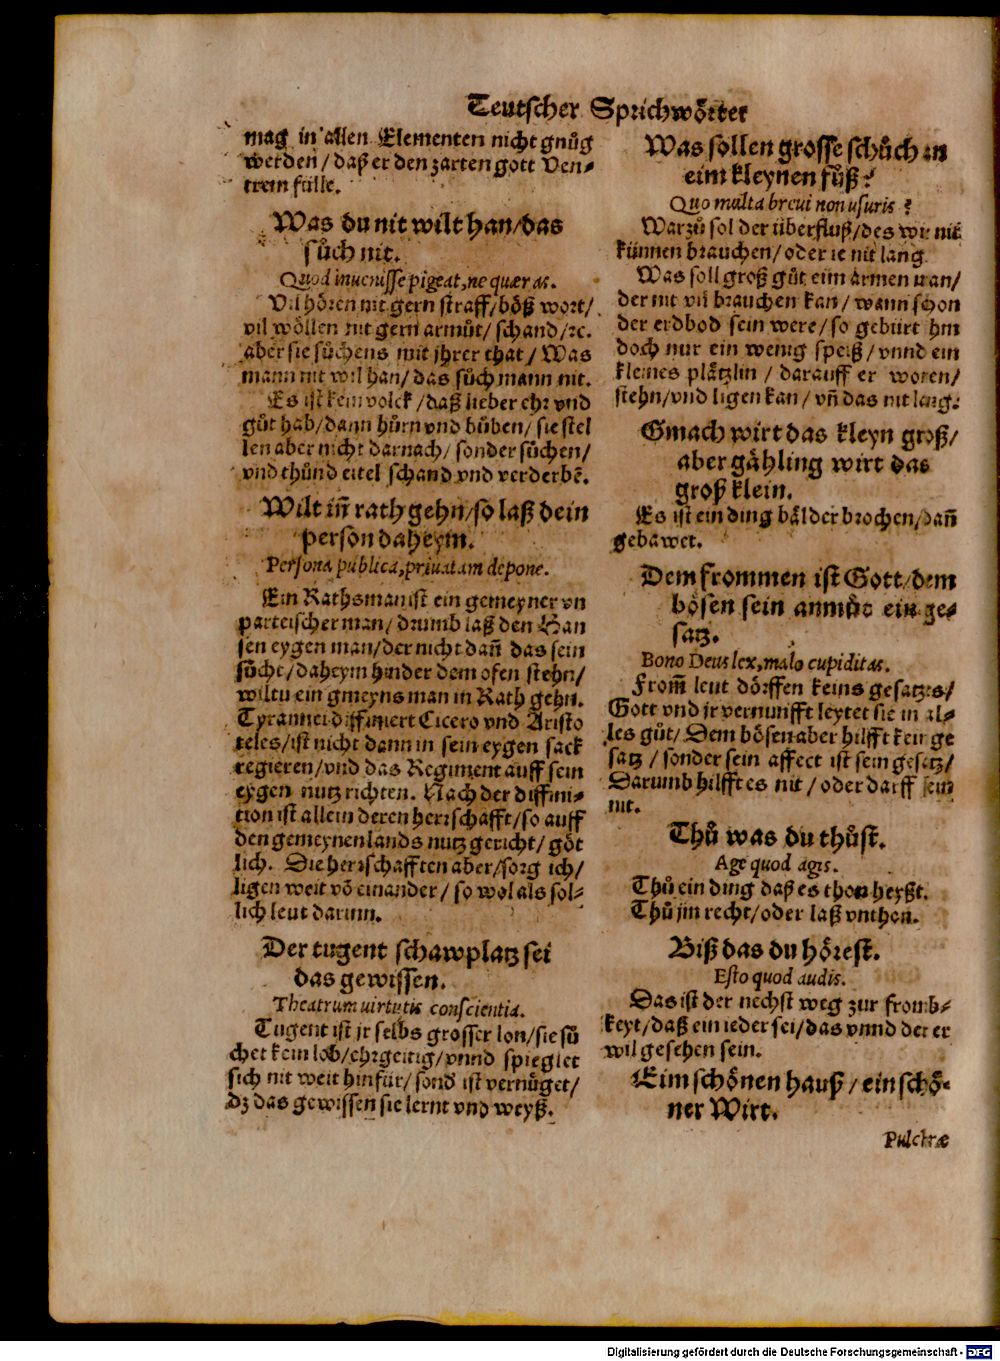 Teutscher Sprichwoͤrter
mag in allen Elementen nicht gnuͦg
werden / daß er den zarten gott Ven-
trem fülle.
Was du nit wilt han/das
suͦch nit.
Quod inuenisse pigeat, ne quæras.
Vil hoͤren nit gern straff/ boͤß wort/
vil woͤllen nit gern armuͦt/ schand/ ꝛc.
aber sie suͦchens mit jhrer that / Was
mann nit wil han/ das suͦch mann nit.
Es ist kein volck / daß lieber ehr vnd
guͦt hab/ dann huͦrn vnd buͦben/ sie stel
len aber nicht darnach/ sonder suͦchen/
vnd thuͦnd eitel schand vnd verderbē.
Wilt iñ rath gehn/so laß dein
person daheym.
Persona publica, priuatam depone.
Ein Rathsman ist ein gemeyner vn
parteischer man/ drumb laß den Han
sen eygen man/der nicht dañ das sein
suͦcht/ daheym hinder dem ofen stehn/
wiltu ein gmeyns man in Rath gehn.
Tyrannei diffiniert Cicero vnd Aristo
teles/ist nicht dann in sein eygen sack
regieren/vnd das Regiment auff sein
eygen nutz richten. Nach der diffini-
tion ist allein deren herrschafft/so auff
den gemeynen lands nutz gericht/ goͤt
lich. Die herrschafften aber/sorg ich/
ligen weit võ einander / so wol als sol-
lich leut darinn.
Der tugent schawplatz sei
das gewissen.
Theatrum uirtutis conscientia.
Tugent ist jr selbs grosser lon/sie suͦ
chet kein lob/ehrgeitig/vnnd spieglet
sich nit weit hinfür/ sond ist vernuͤget/
dz das gewissen sie lernt vnd weyß.
Was sollen grosse schuͦch an
eim kleynen fuͦß?
Quo multa breui non usuris?
Warzuͦ sol der überfluß/des wir nit
künnen brauchen/oder ie nit lang.
Was soll groß guͦt eim armen man/
der nit vil brauchen kan / wann schon
der erdbod sein were/ so gebürt hm
doch nur ein wenig speiß/ vnnd ein
kleines plaͤtzlin / darauff er woren/
stehn/vnd ligen kan/ vñ das nit lang.
Gmach wirt das kleyn groß/
aber gaͤhling wirt das
groß klein.
Es ist ein ding baͤlder brochen/dañ
gebawet.
Dem frommen ist Gott/dem
boͤsen sein anmuͦt ein ge-
satz.
Bono Deus lex, malo cupiditas.
From̃ leut doͤrffen keins gesatzes/
Gott vnd jr vernunfft leytet sie in al-
les guͦt/ Dem boͤsen aber hilfft kein ge
satz / sonder sein affect ist sein gesatz/
Darumb hilfft es nit / oder darff sein
nit.
Thuͦ was du thuͦst.
Age quod agis.
Thuͦ ein ding daß es thon heyßt.
Thuͦ jm recht/oder laß vnthon.
Biß das du hoͤrest.
Esto quod audis.
Das ist der nechst weg zur fromb-
keyt/daß ein ieder sei/das vnnd der er
wil gesehen sein.
Eim schoͤnen hauß / ein schoͤ-
ner Wirt.
Pulchræ
Digitalisierung gefördert durch die Deutsche Forschungsgemeinschaft - DFG